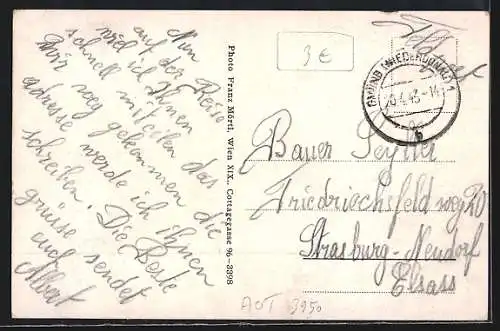 Nun
auf der Reise
will ich Ihnen
schnell mitteilen das
Wir weg gekommen die
Adresse werde ich ihnen
schreiben. Die Beste
grüsse sendet
auch
Albert
Photo Franz Mörtl, Wien XIX., Cottagegasse 96—3398
3€
Feldpost
GMÜND (NIEDERDONAU) 1
20.4.43.-14
b
Bauer
Friedrichsfeld weg 20
Strasburg-Neudorf
Elsass
AOT 3950